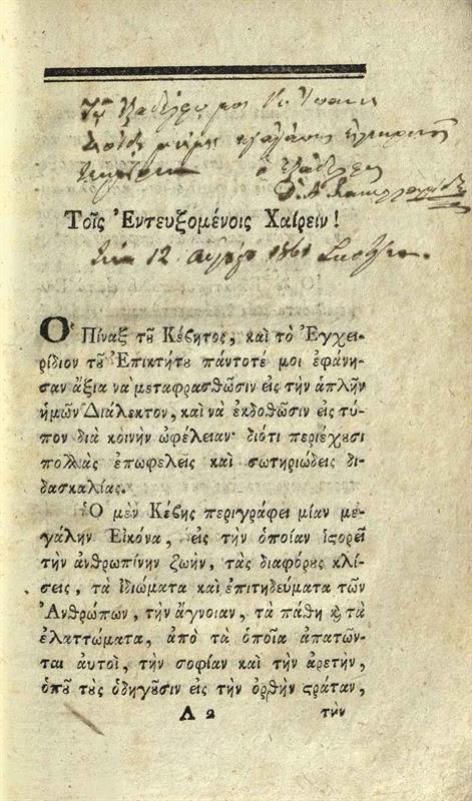 Τῷ ἐξαδέλφῳ μοι
ὁ ἐξάδελφος
Τοῖς Ἐντευξομένοις Χαίρειν!
12 1861
Ὁ Πίναξ τοῦ Κέβητος, καὶ τὸ Ἐγχει-
ρίδιον τοῦ Ἐπικτήτου πάντοτέ μοι ἐφάνη-
σαν ἄξια νὰ μεταφρασθῶσιν εἰς τὴν ἁπλῆν
ἡμῶν Διάλεκτον, καὶ νὰ ἐκδοθῶσιν εἰς τύ-
πον διὰ κοινὴν ὠφέλειαν· διότι περιέχουσι
πολλὰς ἐπωφελεῖς καὶ σωτηριώδεις δι-
δασκαλίας.
Ὁ μὲν Κέβης περιγράφει μίαν με-
γάλην Εἰκόνα, εἰς τὴν ὁποίαν ἱστορεῖ
τὴν ἀνθρωπίνην ζωὴν, τὰς διαφόρους κλί-
σεις, τὰ ἰδιώματα καὶ ἐπιτηδεύματα τῶν
Ἀνθρώπων, τὴν ἄγνοιαν, τὰ πάθη ϗ τὰ
ἐλαττώματα, ἀπὸ τὰ ὁποῖα ἀπατῶν-
ται αὐτοὶ, τὴν σοφίαν καὶ τὴν ἀρετὴν,
ὁποῦ τοὺς ὁδηγοῦσιν εἰς τὴν ὀρθὴν στράταν,
Α 2 τὴν